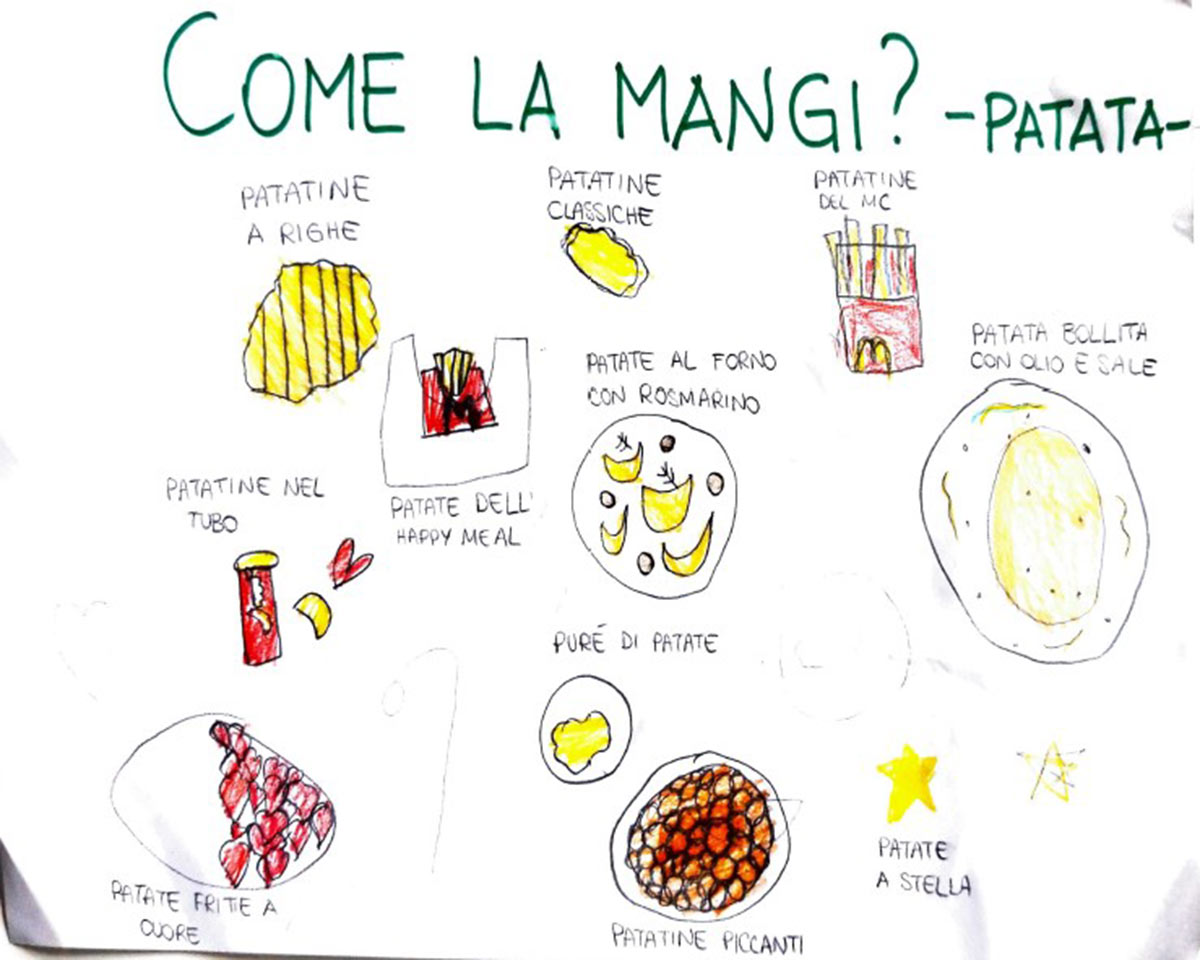 COME LA MANGI? -PATATA-
PATATINE
A RIGHE
PATATINE
CLASSICHE
PATATINE
DEL MC
PATATA BOLLITA
CON OLIO E SALE
PATATE AL FORNO
CON ROSMARINO
PATATINE NEL
TUBO
PATATE DELL'
HAPPY MEAL
PURÉ DI PATATE
PATATE
A STELLA
PATATE FRITTE A
CUORE
PATATINE PICCANTI